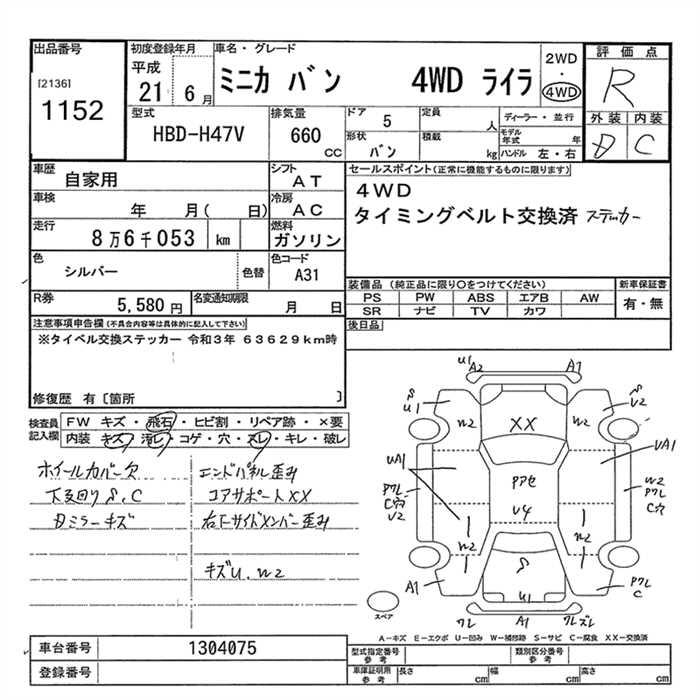 出品番号
[2136]
1152
初度登録年月
平成
21 6月
車名・グレード
ミニカ バン 4WD ライラ
2WD
・
4WD
評価点
R
外装 内装
D C
型式
HBD-H47V
排気量
660
CC
ドア 5
形状
バン
定員
人
積載
kg
ディーラー・並行
モデル年式 年
ハンドル 左・右
車歴
自家用
シフト
AT
車検
年 月( 日)
冷房
AC
走行
8万6千053 km
燃料
ガソリン
色
シルバー
色替
色コード
A31
R券
5,580円
名変通知期限
月 日
セールスポイント(正常に機能するものに限ります)
4WD
タイミングベルト交換済 ステッカー
装備品 (純正品に限り○をつけてください)
PS PW ABS エアB AW
SR ナビ TV カワ
新車保証書
有・無
後日品
注意事項申告欄 (不具合内容等は具体的に記入して下さい)
※タイベル交換ステッカー 令和3年 63629km時
修復歴 有〔箇所 〕
検査員
記入欄
FW キズ・飛石・ヒビ割・リペア跡・×要
内装 キズ・汚レ・コゲ・穴・スレ・キレ・破レ
ホイールカバー欠
下回りS、C
ミラーキズ
エンドパネル歪み
コアサポートXX
右下サイドメンバー歪み
キズU、W2
U1
A2
A1
S
U1
W2
XX
W2
S
U2
UA1
UA1
Pアセ
U4
Pワレ
C穴
U2
W2
Pワレ
C穴
W2
W2
S
U1
A1
Pワレ
C
ワレ
A1
ワレズレ
スペア
A－キズ E－エクボ U－凹み W－補修跡 S－サビ C－腐食 XX－交換済
車台番号
1304075
登録番号
型式指定番号
参考
類別区分番号
参考
車庫証明用
参考
長さ cm
幅 cm
高さ cm